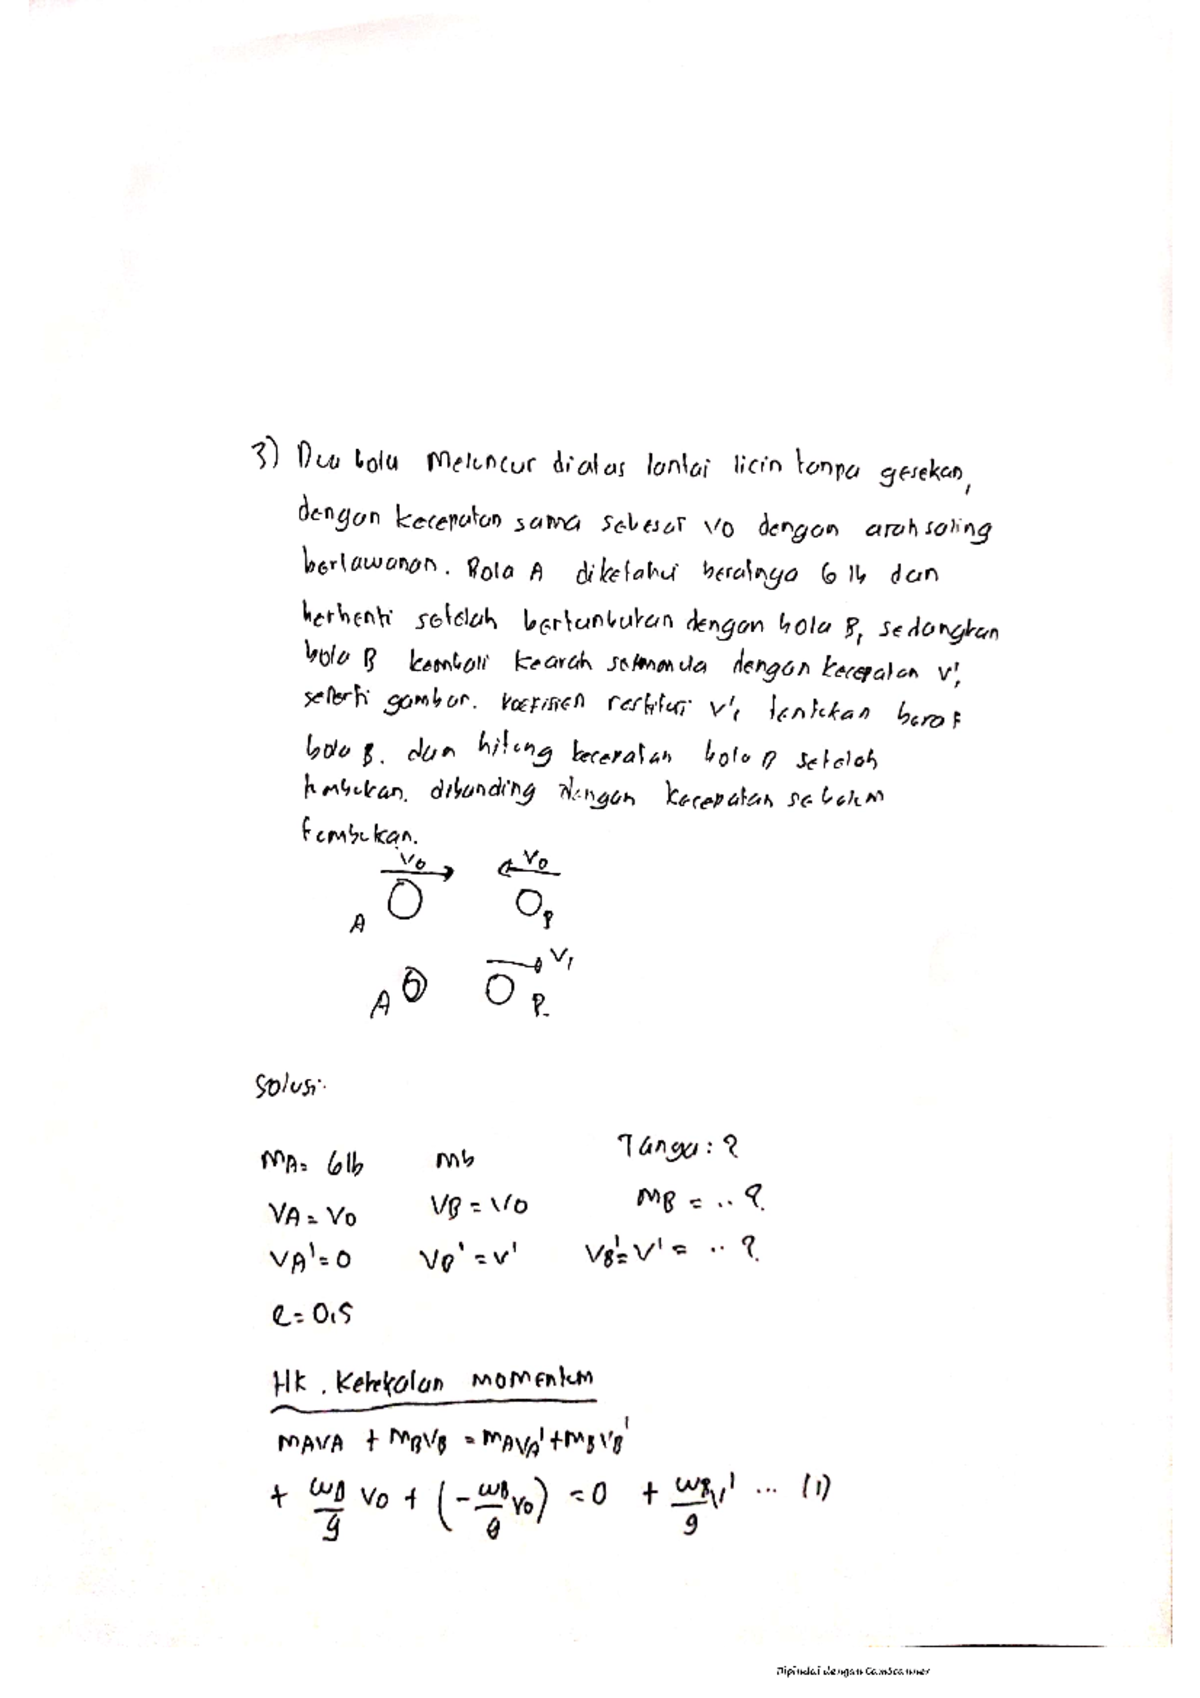 3) Dua bola meluncur diatas lantai licin tanpa gesekan,
dengan kecepatan sama sebesar vo dengan arah saling
berlawanan. Bola A diketahui beratnya 6 lb dan
berhenti setelah bertumbukan dengan bola B, sedangkan
bola B kembali kearah semula dengan kecepatan v',
seperti gambar. koefisien restitusi v', tentukan berat
bola B. dan hitung kecepatan bola B setelah
tumbukan. dibanding dengan kecepatan sebelum
tumbukan.
vo vo
A B
v1
A B
Solusi:
MA= 6lb mb Tanya: ?
VA = Vo VB = Vo MB = .. ?
VA' = 0 VB' = v' VB'= V' = .. ?
e = 0,5
Hk. Kekekalan momentum
MAVA + MBVB = MAVA' + MBVB'
+ vo + (- WB/g vo) = 0 + WB/g v' ... (1)
Dipindai dengan CamScanner